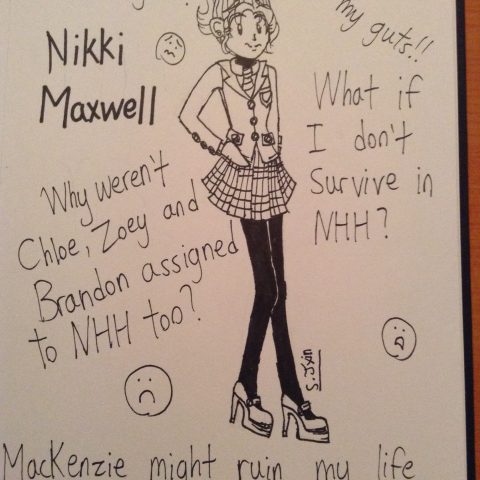 my guts!!
Nikki
Maxwell
What if
I don't
survive in
NHH?
Why weren't
Chloe, Zoey and
Brandon assigned
to NHH too?
MacKenzie might ruin my life